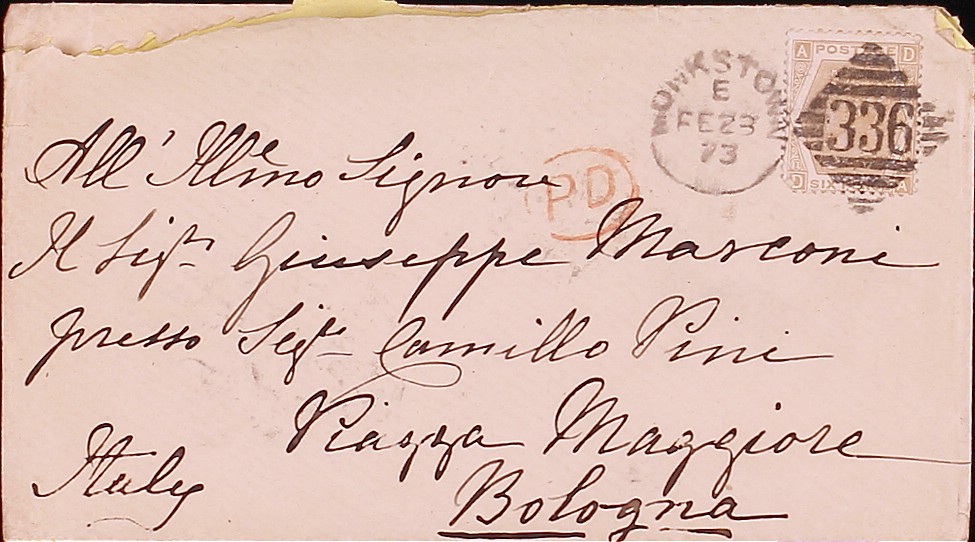 A POSTAGE D
MONKSTOWN
E
FE 23
73
336
D SIXPENCE A
PD
All' Illmo Signore
Il Sigr. Giuseppe Marconi
presso Sigr. Camillo Pini
Piazza Maggiore
Italy
Bologna